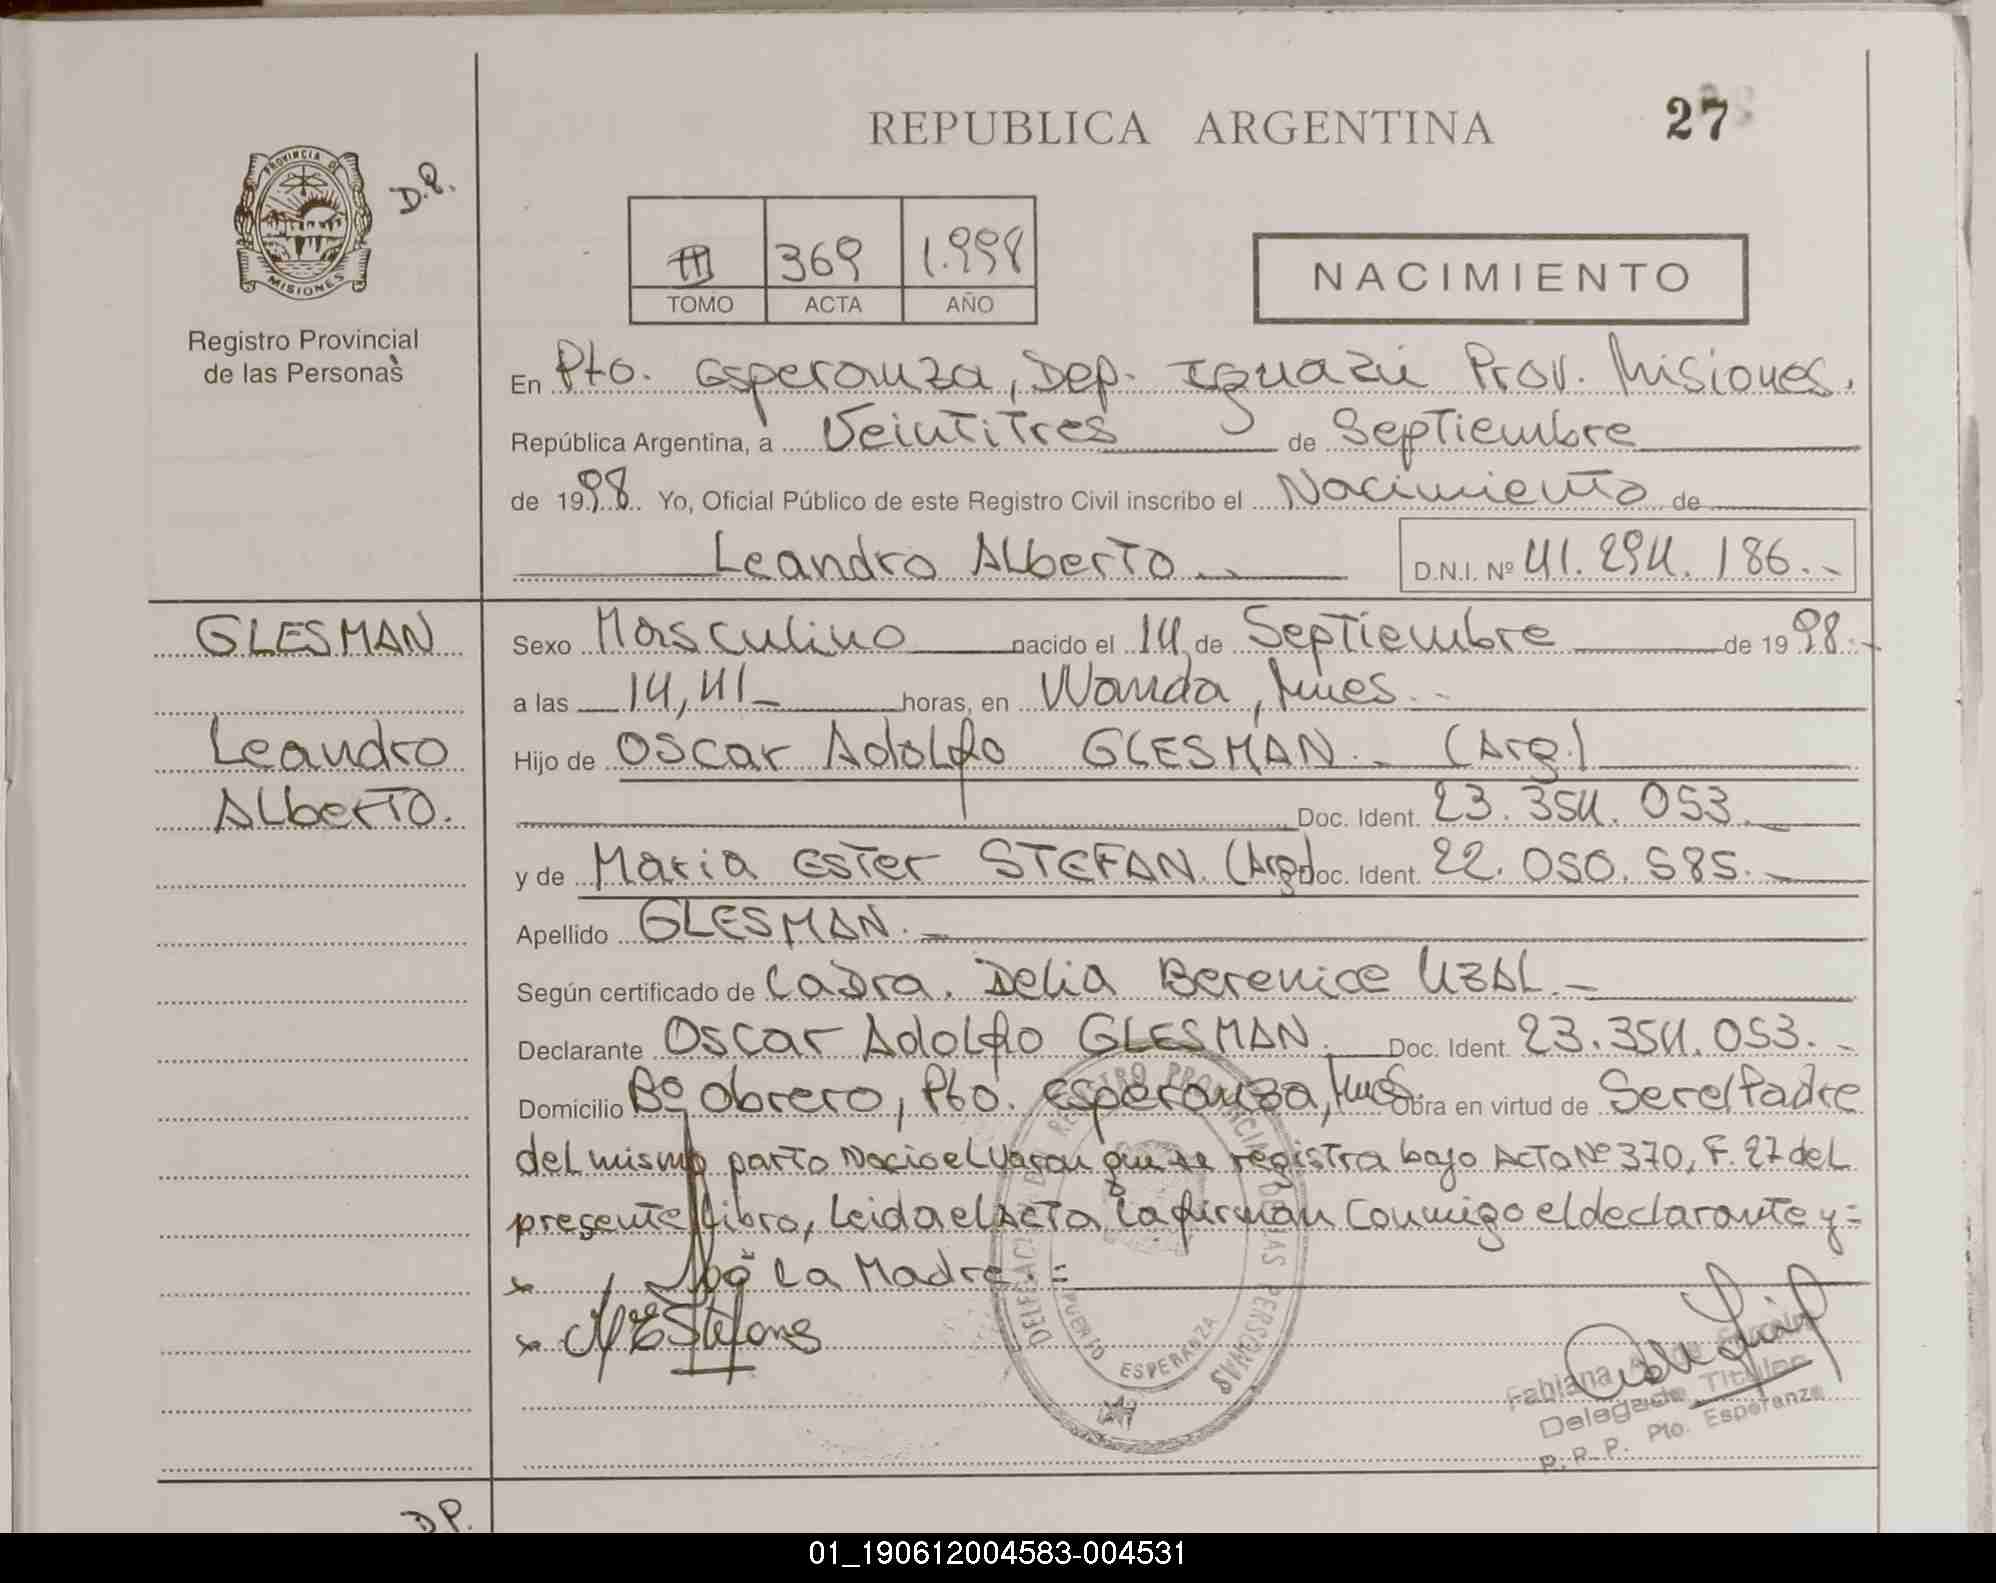 REPUBLICA ARGENTINA
27
PROVINCIA DE
MISIONES
D.P.
Registro Provincial
de las Personas
III 369 1.998
TOMO ACTA AÑO
NACIMIENTO
En Pto. Esperanza, Dep. Iguazú Prov. Misiones.
República Argentina, a Veintitres de Septiembre
de 1998. Yo, Oficial Público de este Registro Civil inscribo el Nacimiento de
Leandro Alberto
D.N.I. Nº 41.294.186.-
GLESMAN
Leandro
Alberto.
Sexo Masculino nacido el 14 de Septiembre de 1998.-
a las 14,41 horas, en Wanda, Mnes.-
Hijo de Oscar Adolfo GLESMAN.- (Arg.)
Doc. Ident. 23.354.053.-
y de Maria Ester STEFAN. (Arg) Doc. Ident. 22.050.585.-
Apellido GLESMAN.-
Según certificado de La Dra. Delia Berenice UZAL.-
Declarante Oscar Adolfo GLESMAN. Doc. Ident. 23.354.053.-
Domicilio Bº Obrero, Pto. Esperanza, Mnes. Obra en virtud de Ser el Padre
del mismo parto Nacio el Varon que se registra bajo Acta Nº 370, F. 27 del
presente libro, Leida el Acta La firman Conmigo el declarante y=
La Madre.=
M E Stefans
DELEGACION DEL REGISTRO PROVINCIAL DE LAS PERSONAS
PUERTO ESPERANZA
Fabiana
Delegada Titular
R. P. P. Pto. Esperanza
D.P.
01_190612004583-004531